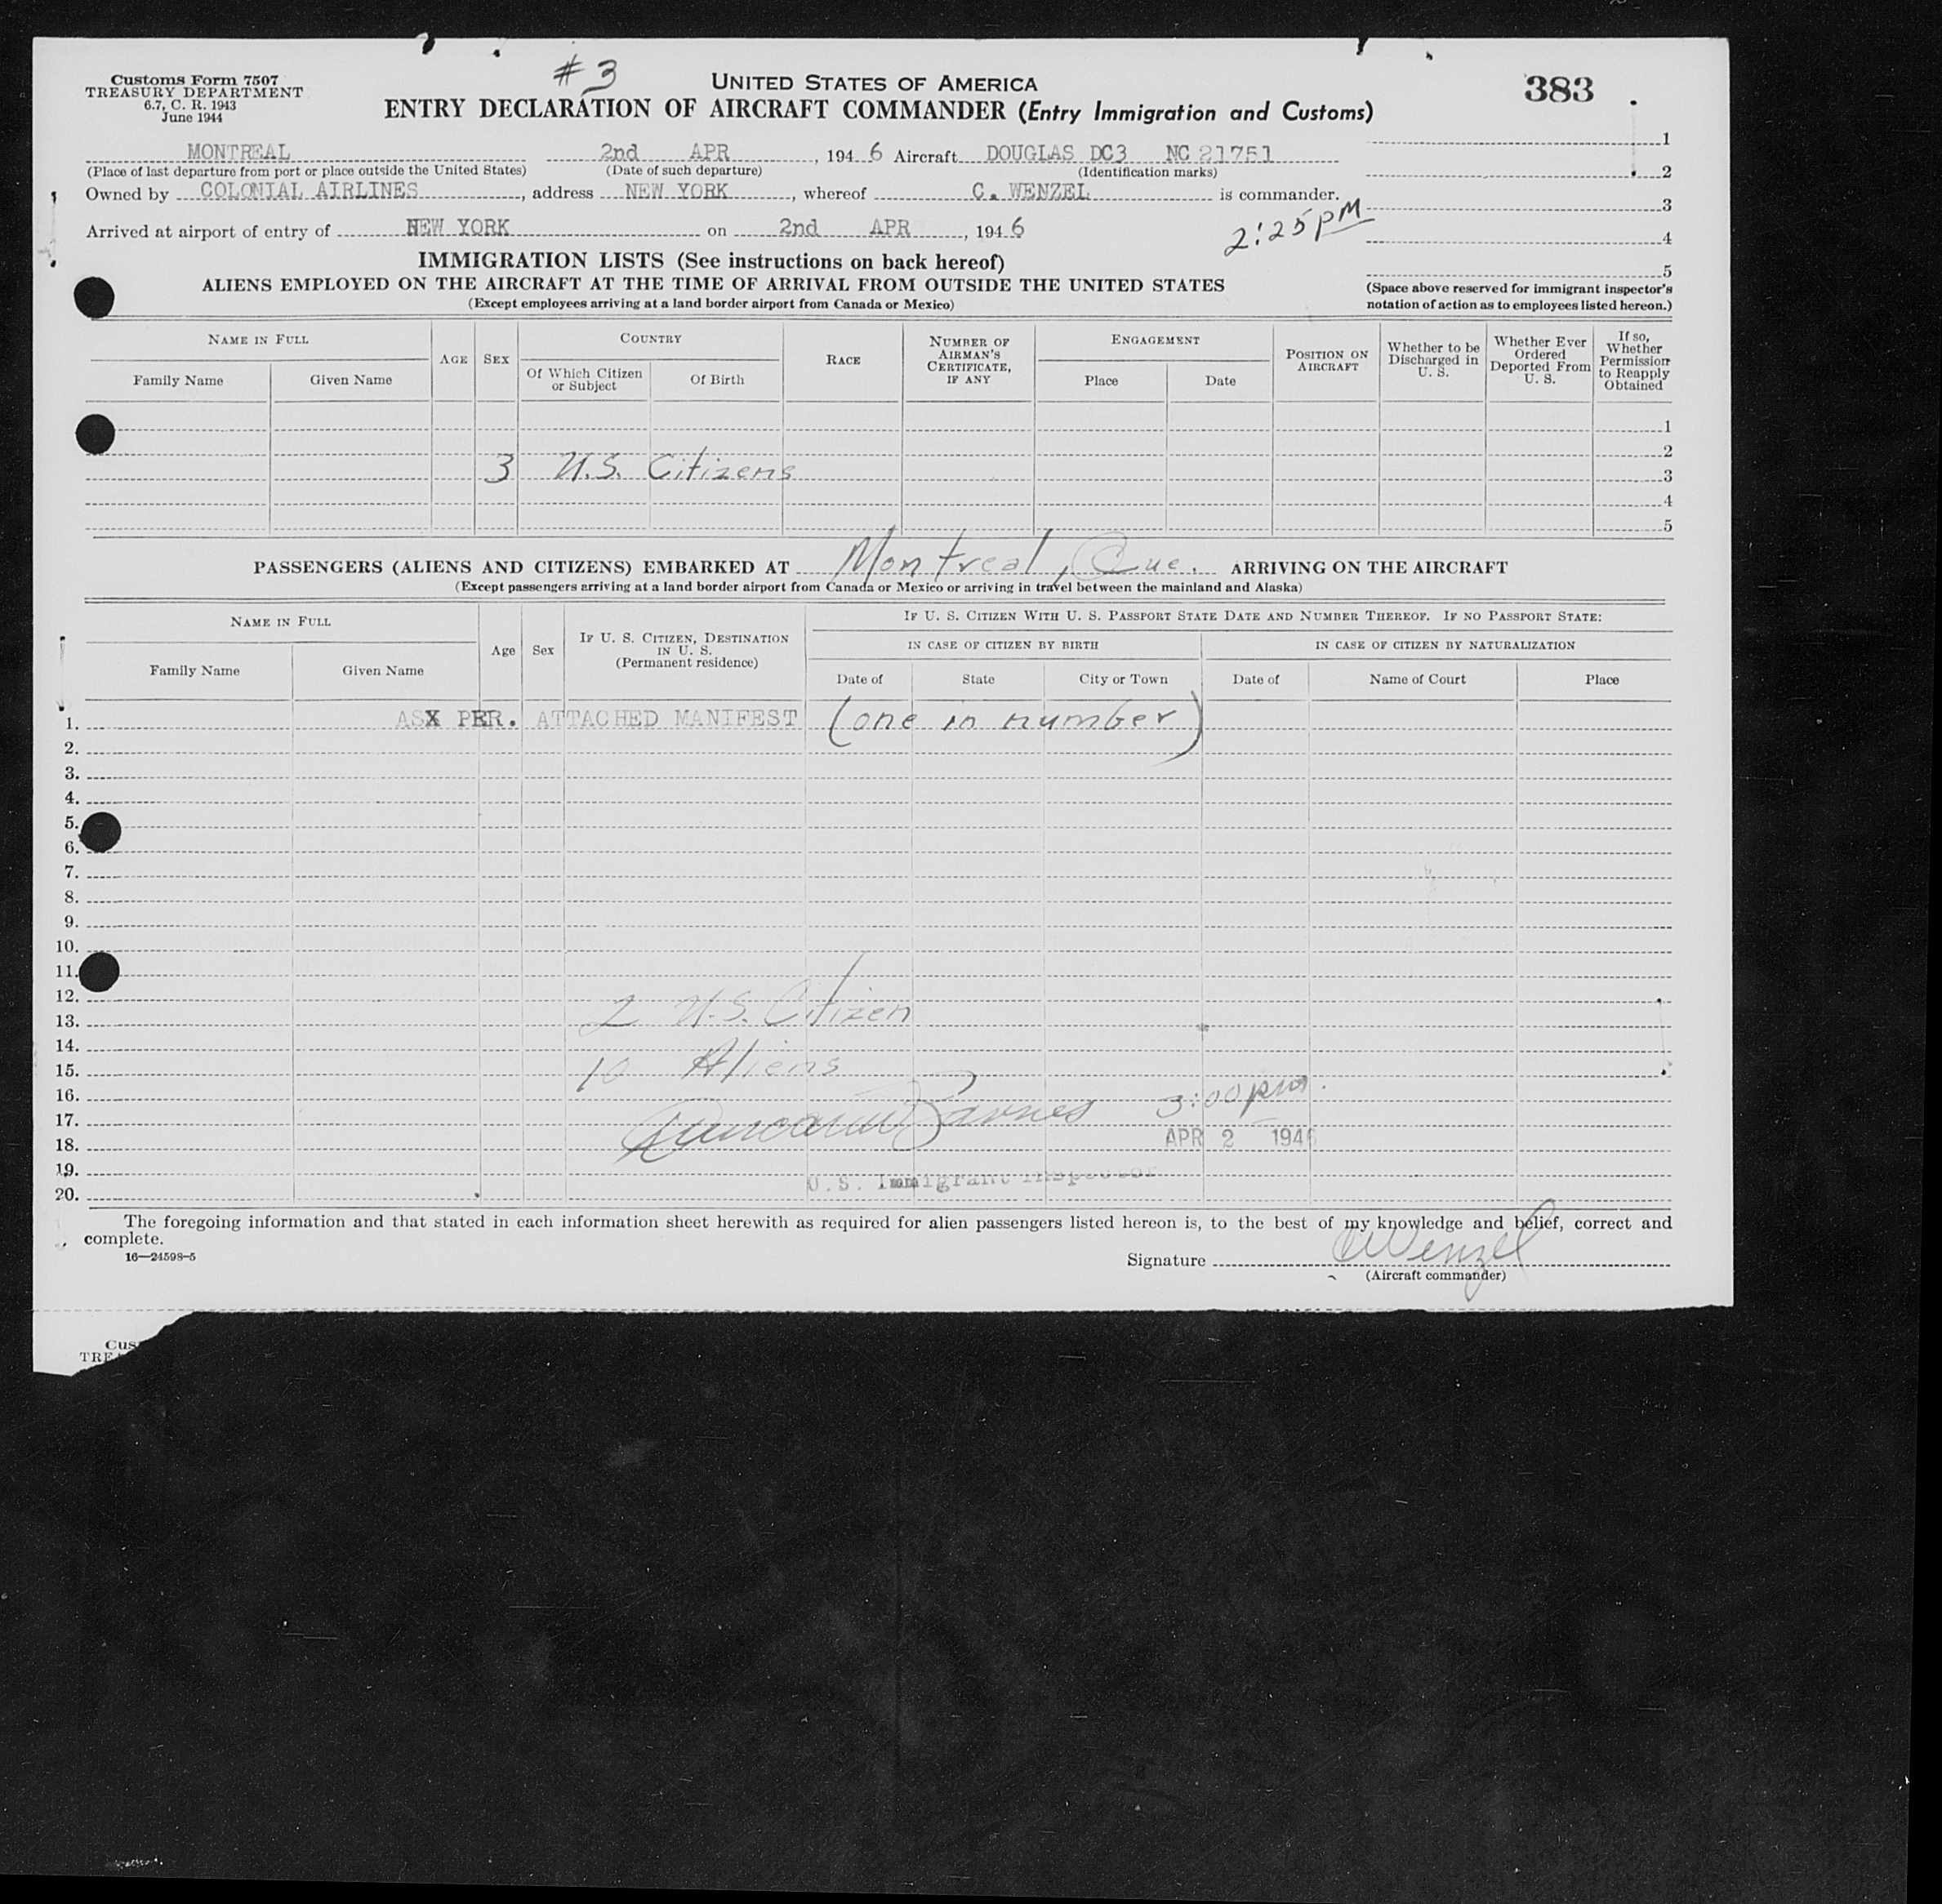 Customs Form 7507
TREASURY DEPARTMENT
6.7, C. R. 1943
June 1944
#3
UNITED STATES OF AMERICA
383
ENTRY DECLARATION OF AIRCRAFT COMMANDER (Entry Immigration and Customs)
MONTREAL 2nd APR, 1946 Aircraft DOUGLAS DC3 NC 21751
(Place of last departure from port or place outside the United States) (Date of such departure) (Identification marks)
Owned by COLONIAL AIRLINES, address NEW YORK, whereof C. WENZEL is commander.
Arrived at airport of entry of NEW YORK on 2nd APR, 1946 2:25 PM
1
2
3
4
5
IMMIGRATION LISTS (See instructions on back hereof)
ALIENS EMPLOYED ON THE AIRCRAFT AT THE TIME OF ARRIVAL FROM OUTSIDE THE UNITED STATES
(Except employees arriving at a land border airport from Canada or Mexico)
(Space above reserved for immigrant inspector's
notation of action as to employees listed hereon.)
NAME IN FULL
Family Name Given Name
AGE
SEX
COUNTRY
Of Which Citizen or Subject
Of Birth
RACE
NUMBER OF AIRMAN'S CERTIFICATE, IF ANY
ENGAGEMENT
Place Date
POSITION ON AIRCRAFT
Whether to be Discharged in U. S.
Whether Ever Ordered Deported From U. S.
If so, Whether Permission to Reapply Obtained
1
2
3 U.S. Citizens 3
4
5
PASSENGERS (ALIENS AND CITIZENS) EMBARKED AT Montreal, Que. ARRIVING ON THE AIRCRAFT
(Except passengers arriving at a land border airport from Canada or Mexico or arriving in travel between the mainland and Alaska)
NAME IN FULL
Family Name Given Name
Age
Sex
IF U. S. CITIZEN, DESTINATION IN U. S.
(Permanent residence)
IF U. S. CITIZEN WITH U. S. PASSPORT STATE DATE AND NUMBER THEREOF. IF NO PASSPORT STATE:
IN CASE OF CITIZEN BY BIRTH IN CASE OF CITIZEN BY NATURALIZATION
Date of State City or Town Date of Name of Court Place
1. ASX PER. ATTACHED MANIFEST (one in number)
2.
3.
4.
5.
6.
7.
8.
9.
10.
11.
12.
13. 2 U.S. Citizen
14.
15. 10 Aliens
16. 3:00 pm.
17. Barnes
18. APR 2 1946
19. U.S. Immigrant Inspector
20.
The foregoing information and that stated in each information sheet herewith as required for alien passengers listed hereon is, to the best of my knowledge and belief, correct and
complete.
16—24598-5
Signature CWenzel
(Aircraft commander)
Cus
TREA